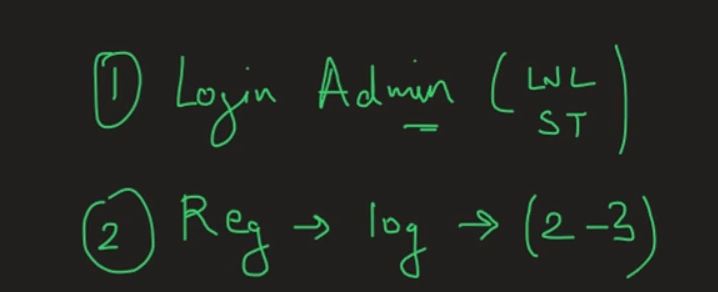 ① Login Admin (LNL
ST)
② Reg → log → (2-3)